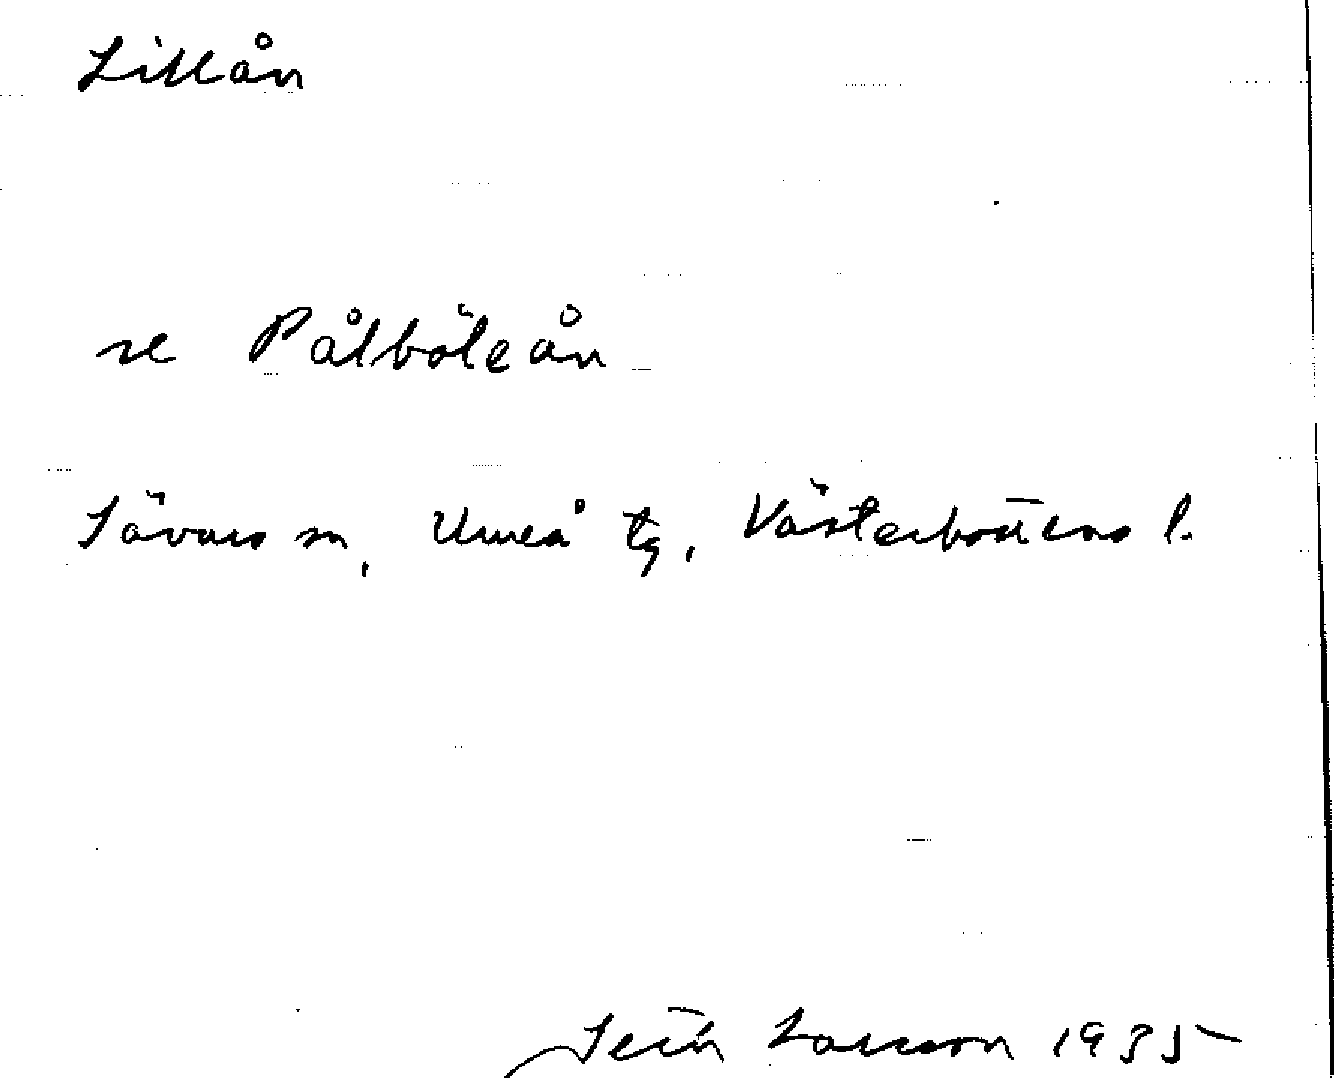 Lillån
se Pålböleån
Sävars sn, Umeå tg, Västerbottens l.
Larsson 1935